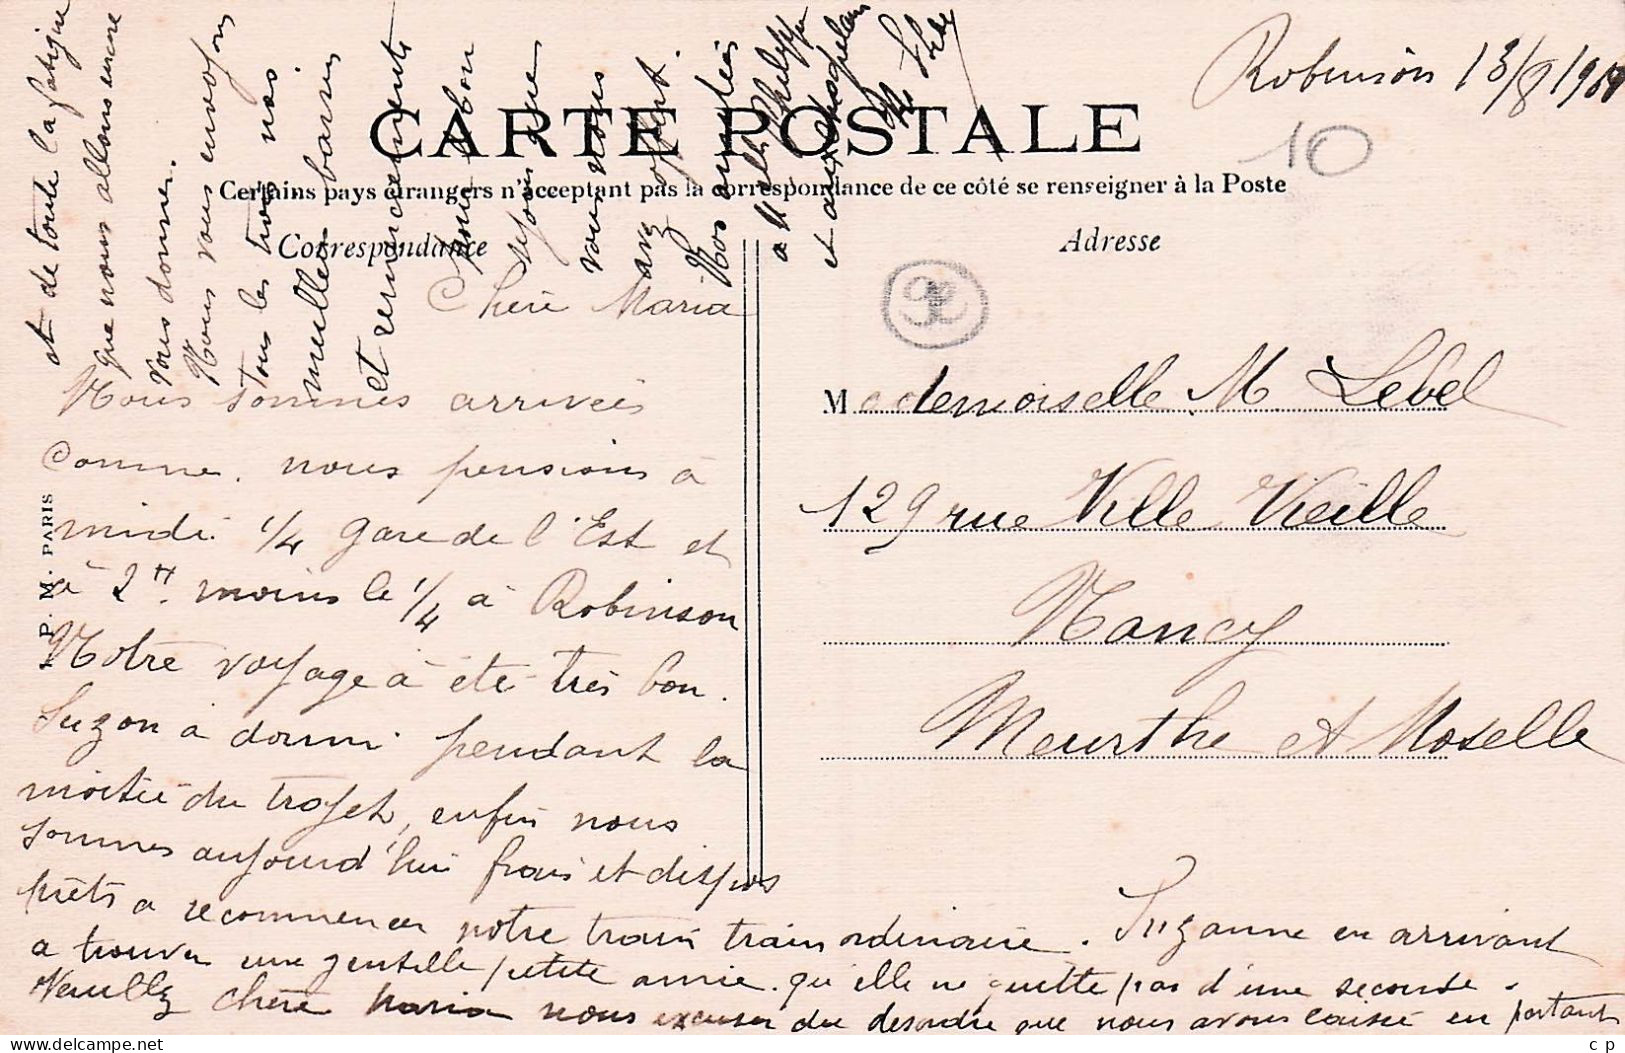 Robinson 13/8/190
10
CARTE POSTALE
Certains pays étrangers n'acceptent pas la correspondance de ce côté se renseigner à la Poste
Correspondance
Adresse
Chère Maria
Nous sommes arrivées
comme nous pensions à
midi 1/4 gare de l'Est et
à 2H. moins le 1/4 à Robinson
Notre voyage à été très bon.
Suzon à dormi pendant la
moitié du trajet, enfin nous
sommes aujourd'hui frais et dispos
prêts a recommencer notre train train ordinaire. Suzanne en arrivant
a trouver une gentille petite amie qu'elle ne quitte pas d'une seconde.
Veuillez chère Maria nous excuser du desordre que nous avons laissé en partant
et de toute la fatigue
que nous allons encore
vous donner.
Nous vous envoyons
tous les trois nos
meilleurs baisers
et remerciements
pour le bon
séjour que
vous nous
avez offert.
Nos amitiés
a Melle Philippe
et aux
Mademoiselle M. Lebel
129 rue Ville Vieille
Nancy
Meurthe et Moselle
P. M. PARIS
c p